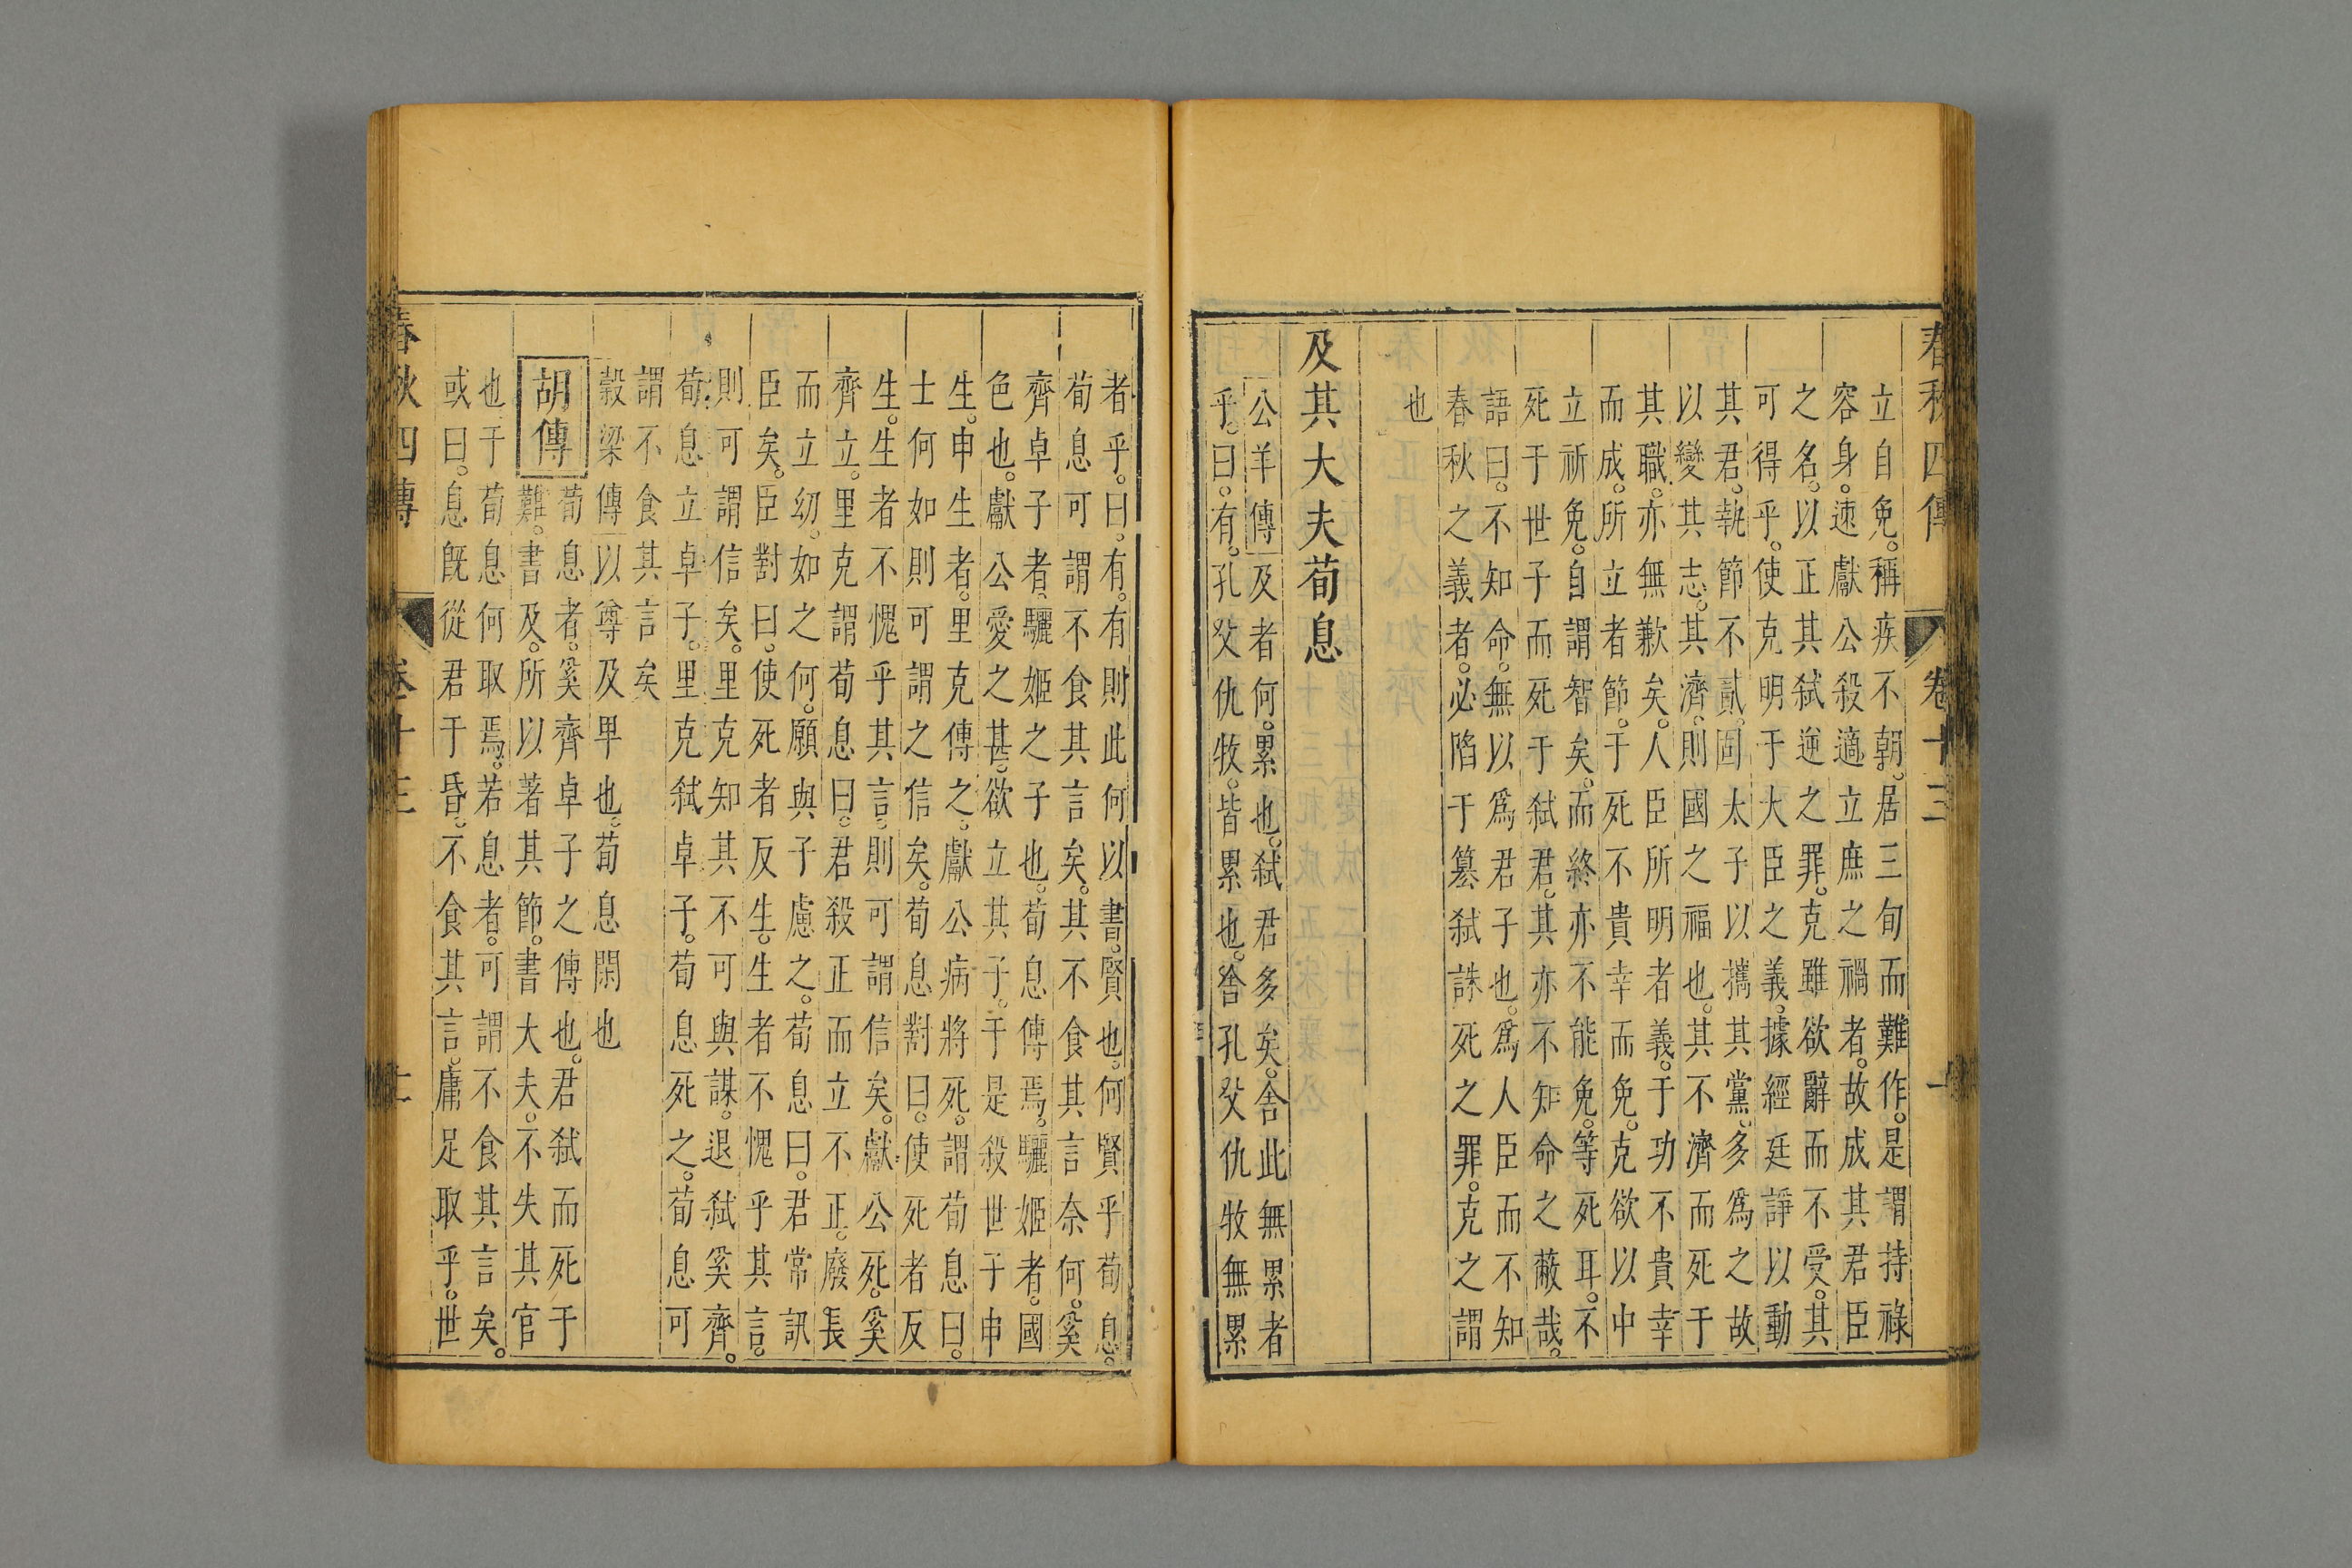 春秋四傳 卷十三 一
立自免。稱疾不朝。居三旬而難作。是謂持祿
容身。速獻公殺適立庶之禍者。故成其君臣
之名。以正其弑逆之罪。克雖欲辭而不受。其
可得乎。使克明于大臣之義。據經廷諍以動
其君。執節不貳。固太子以攜其黨。多爲之故
以變其志。其濟。則國之福也。其不濟而死于
其職。亦無歉矣。人臣所明者義。于功不貴幸
而成。所立者節。于死不貴幸而免。克欲以中
立祈免。自謂智矣。而終亦不能免。等死耳。不
死于世子而死于弑君。其亦不知命之蔽哉。
語曰。不知命。無以爲君子也。爲人臣而不知
春秋之義者。必陷于簒弑誅死之罪。克之謂
也
及其大夫荀息
公羊傳及者何。累也。弑君多矣。舍此無累者
乎。曰。有。孔父仇牧。皆累也。舍孔父仇牧無累
者乎。曰。有。有則此何以書。賢也。何賢乎荀息。
荀息可謂不食其言矣。其不食其言奈何。奚
齊卓子者。驪姬之子也。荀息傅焉。驪姬者。國
色也。獻公愛之甚。欲立其子。于是殺世子申
生。申生者。里克傅之。獻公病將死。謂荀息曰。
士何如則可謂之信矣。荀息對曰。使死者反
生。生者不愧乎其言。則可謂信矣。獻公死。奚
齊立。里克謂荀息曰。君殺正而立不正。廢長
而立幼。如之何。願與子慮之。荀息曰。君常訊
臣矣。臣對曰。使死者反生。生者不愧乎其言。
則可謂信矣。里克知其不可與謀。退弑奚齊。
荀息立卓子。里克弑卓子。荀息死之。荀息可
謂不食其言矣
穀梁傳以尊及卑也。荀息閑也
胡傳荀息者。奚齊卓子之傅也。君弑而死于
難。書及。所以著其節。書大夫。不失其官
也于荀息何取焉。若息者。可謂不食其言矣。
或曰。息旣從君于昏。不食其言。庸足取乎。世
春秋四傳 卷十三 二